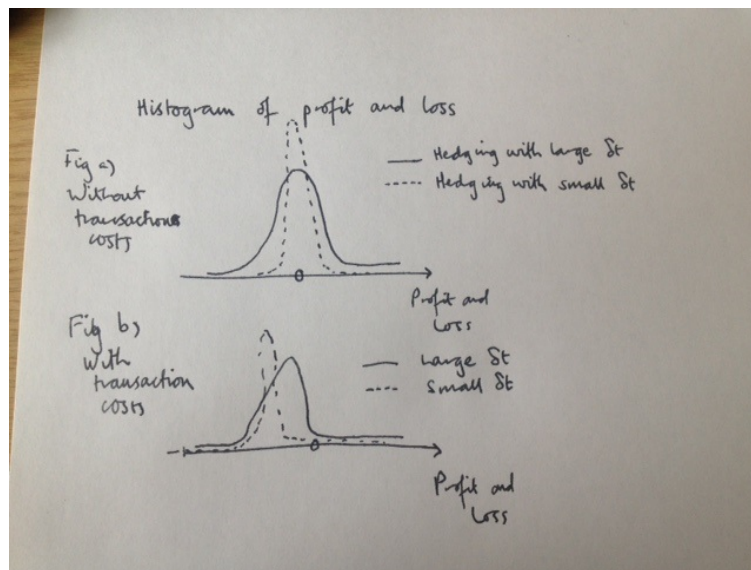 Histogram of profit and loss
Fig a)
Without
transactions
costs
Hedging with large δt
Hedging with small δt
0
Profit and
Loss
Fig b)
With
transaction
costs
Large δt
Small δt
0
Profit and
Loss